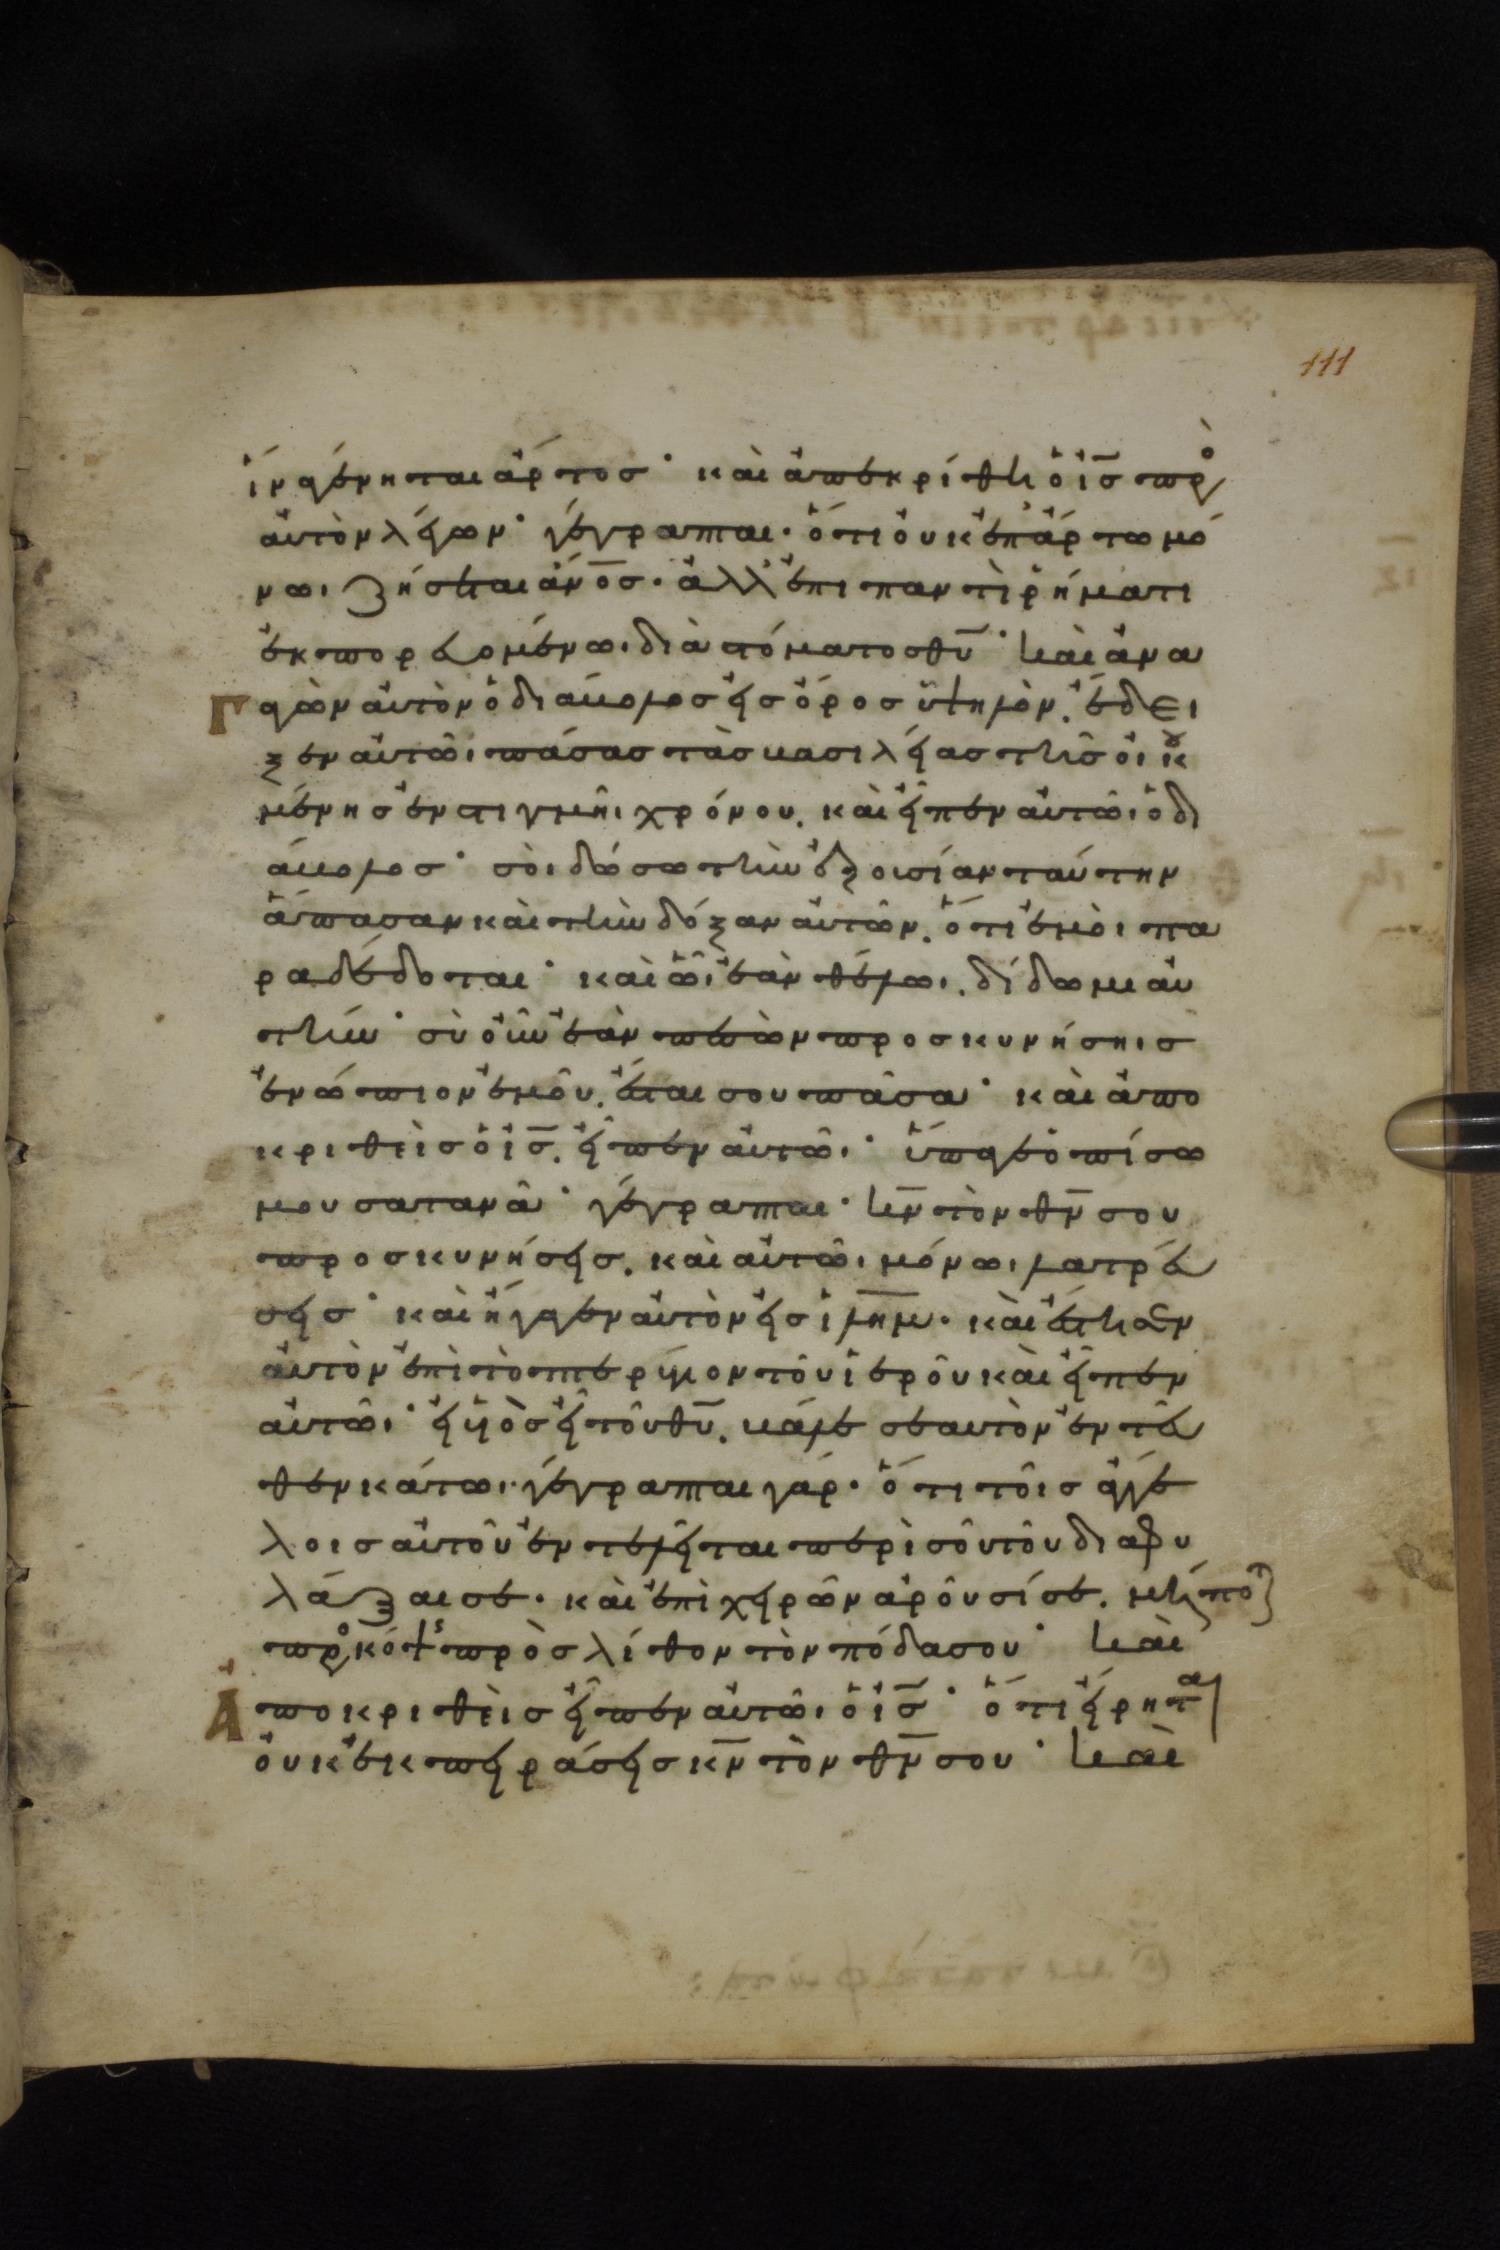 111
ἵνα γένηται ἄρτος· καὶ ἀπεκρίθη ὁ ις̅ πρὸ
αὐτὸν λέγων· γέγραπται· ὅτι οὐκ ἐπ' ἄρτω μό
νωι ζήσεται ἄνος̅· ἀλλ' ἐπι παντὶ ῥήματι
ἐκπορευομένωι διὰ στόματος θυ̅· καὶ ἀνα
γαγὼν αὐτὸν ὁ διάβολος εἰς ὄρος ὑψηλὸν. ἔδει
ξεν αὐτῶι πάσας τὰς βασιλείας τῆς οἰκου
μένης ἐν στιγμῆι χρόνου. καὶ εἶπεν αὐτῶι ὁ δι
άβολος· σοὶ δώσω τὴν ἐξουσίαν ταύτην
ἅπασαν καὶ τὴν δόξαν αὐτῶν. ὅτι ἐμοὶ πα
ραδέδοται· καὶ ὧι ἐὰν θέλωι. δίδωμι αὐ
τήν· σὺ οὖν ἐὰν πεσὼν προσκυνήσηις
ἐνώπιον ἐμοῦ. ἔσται σου πᾶσα· καὶ ἀπο
κριθεὶς ὁ ις̅. εἶπεν αὐτῶι· ὕπαγε ὀπίσω
μου σατανᾶ· γέγραπται· κν̅ τὸν θν̅ σου
προσκυνήσεις. καὶ αὐτῶι μόνωι λατρεύ
σεις· καὶ ἤγαγεν αὐτὸν εἰς ιλημ̅· καὶ ἔστησεν
αὐτὸν ἐπὶ τὸ πτερύγιον τοῦ ἱεροῦ καὶ εἶπεν
αὐτῶι· εἰ υἱὸς εἶ τοῦ θυ̅. βάλε σεαυτὸν ἐντεῦ
θεν κάτωι· γέγραπται γάρ· ὅτι τοῖς ἀγγέ
λοις αὐτοῦ ἐντελεῖται περὶ σοῦ τοῦ διαφυ
λάξαι σε· καὶ ἐπὶ χειρῶν ἀροῦσί σε. μήποτε
προσκόψηις πρὸς λίθον τὸν πόδα σου· καὶ
Ἀποκριθεὶς εἶπεν αὐτῶι ὁ ις̅· ὅτι εἴρηται
οὐκ ἐκπειράσεις κν̅ τὸν θν̅ σου· καὶ